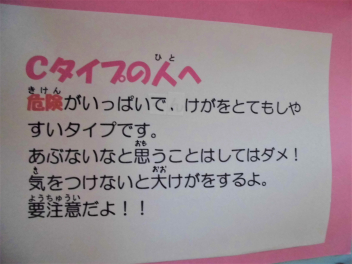 Cタイプの人へ
危険がいっぱいで、けがをとてもしや
すいタイプです。
あぶないなと思うことはしてはダメ！
気をつけないと大けがをするよ。
要注意だよ！！